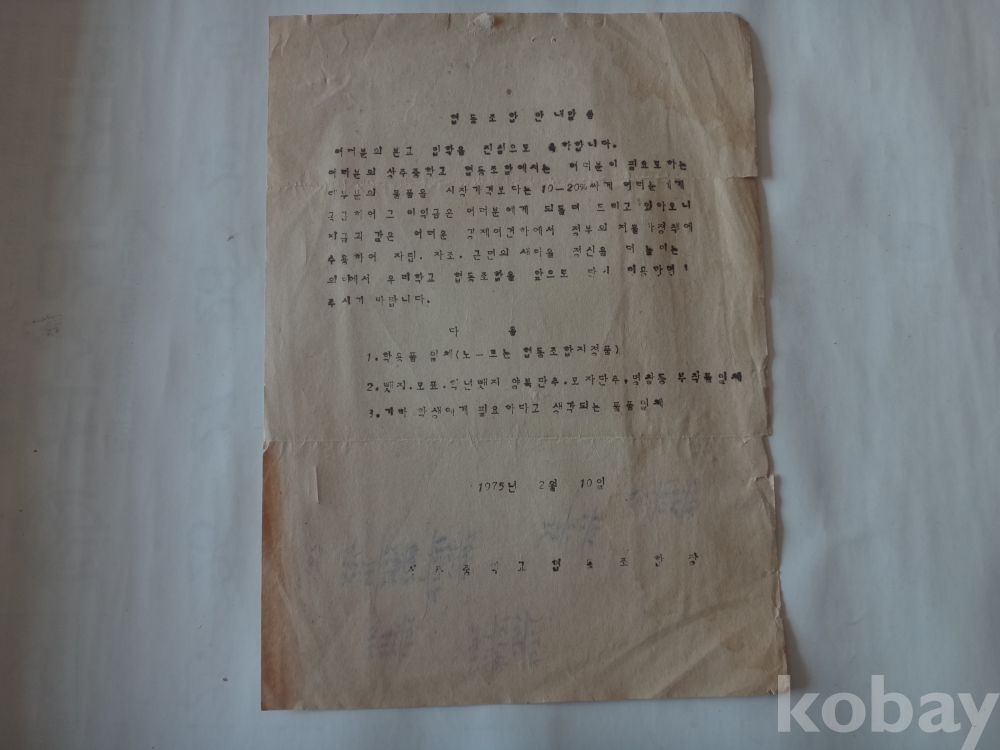 협동조합 안내말씀
여러분의 본교 입학을 진심으로 축하합니다.
여러분의 상주중학교 협동조합에서는 여러분이 필요로하는
물품을 시장가격보다는 10-20% 싸게 여러분에게
공급하여 그 이익금은 여러분에게 되돌려 드리고 있아오니
지금과 같은 어려운 경제여건하에서 정부의 저물가정책에
자립. 자조. 근면의 새마을 정신을 드높이는
의미에서 우리학교 협동조합을 앞으로 많이 이용하여
주시기 바랍니다.
다 음
1. 학용품 일체(노-트는 협동조합지정품)
2. 뺏지. 모표. 학년뺏지 단추. 명찰등 부착물일체
3. 기타 학생에게 필요하다고 생각되는 물품일체
1975년 2월 10일
상주중학교협동조합장
kobay